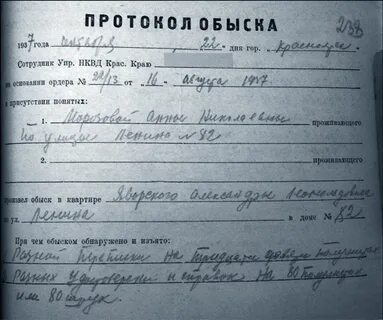 ПРОТОКОЛ ОБЫСКА
238
1937 года октября, 22 дня гор. Красноярск
Сотрудник Упр. НКВД Крас. Краю
на основании ордера № 22/13 от "16" августа 1937
в присутствии понятых:
1. Морозовой Анны Николаевны проживающего
по улице Ленина № 82
2. проживающего
произвел обыск в квартире Яворского Александра Леопольдовича
по ул. Ленина в доме № 82
При чем обыском обнаружено и изъято:
Разной переписки на тридцати девяти
Разных удостоверений и справок на 80
или 80 штук